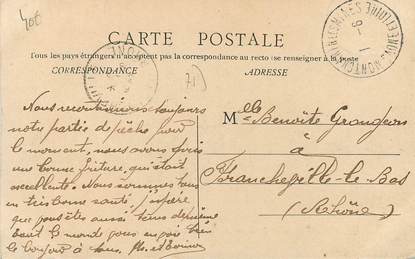 40€
CARTE POSTALE
Tous les pays étrangers n'acceptent pas la correspondance au recto (se renseigner à la poste)
CORRESPONDANCE
ADRESSE
71
Nous recontinuons toujours
notre partie de pêche pour
le moment, nous avons pris
une bonne friture, qui était
excellente. Nous sommes tous
en très bonne santé, j'espère
que vous êtes aussi tous de même
tout le monde vous envoie bien
le bonjour à tous.
Melle Benoîte Grangeon
à
Francheville-le-Bas
(Rhône)